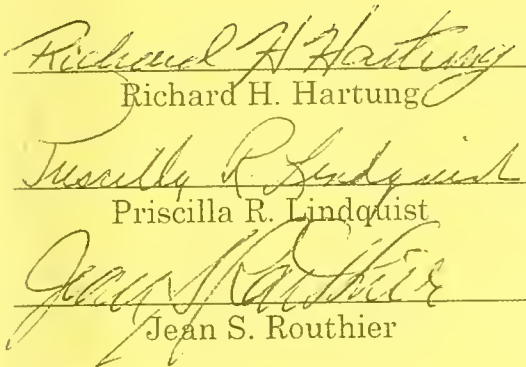 Richard H Hartung
Richard H. Hartung
Priscilla R. Lindquist
Priscilla R. Lindquist
Jean S. Routhier
Jean S. Routhier